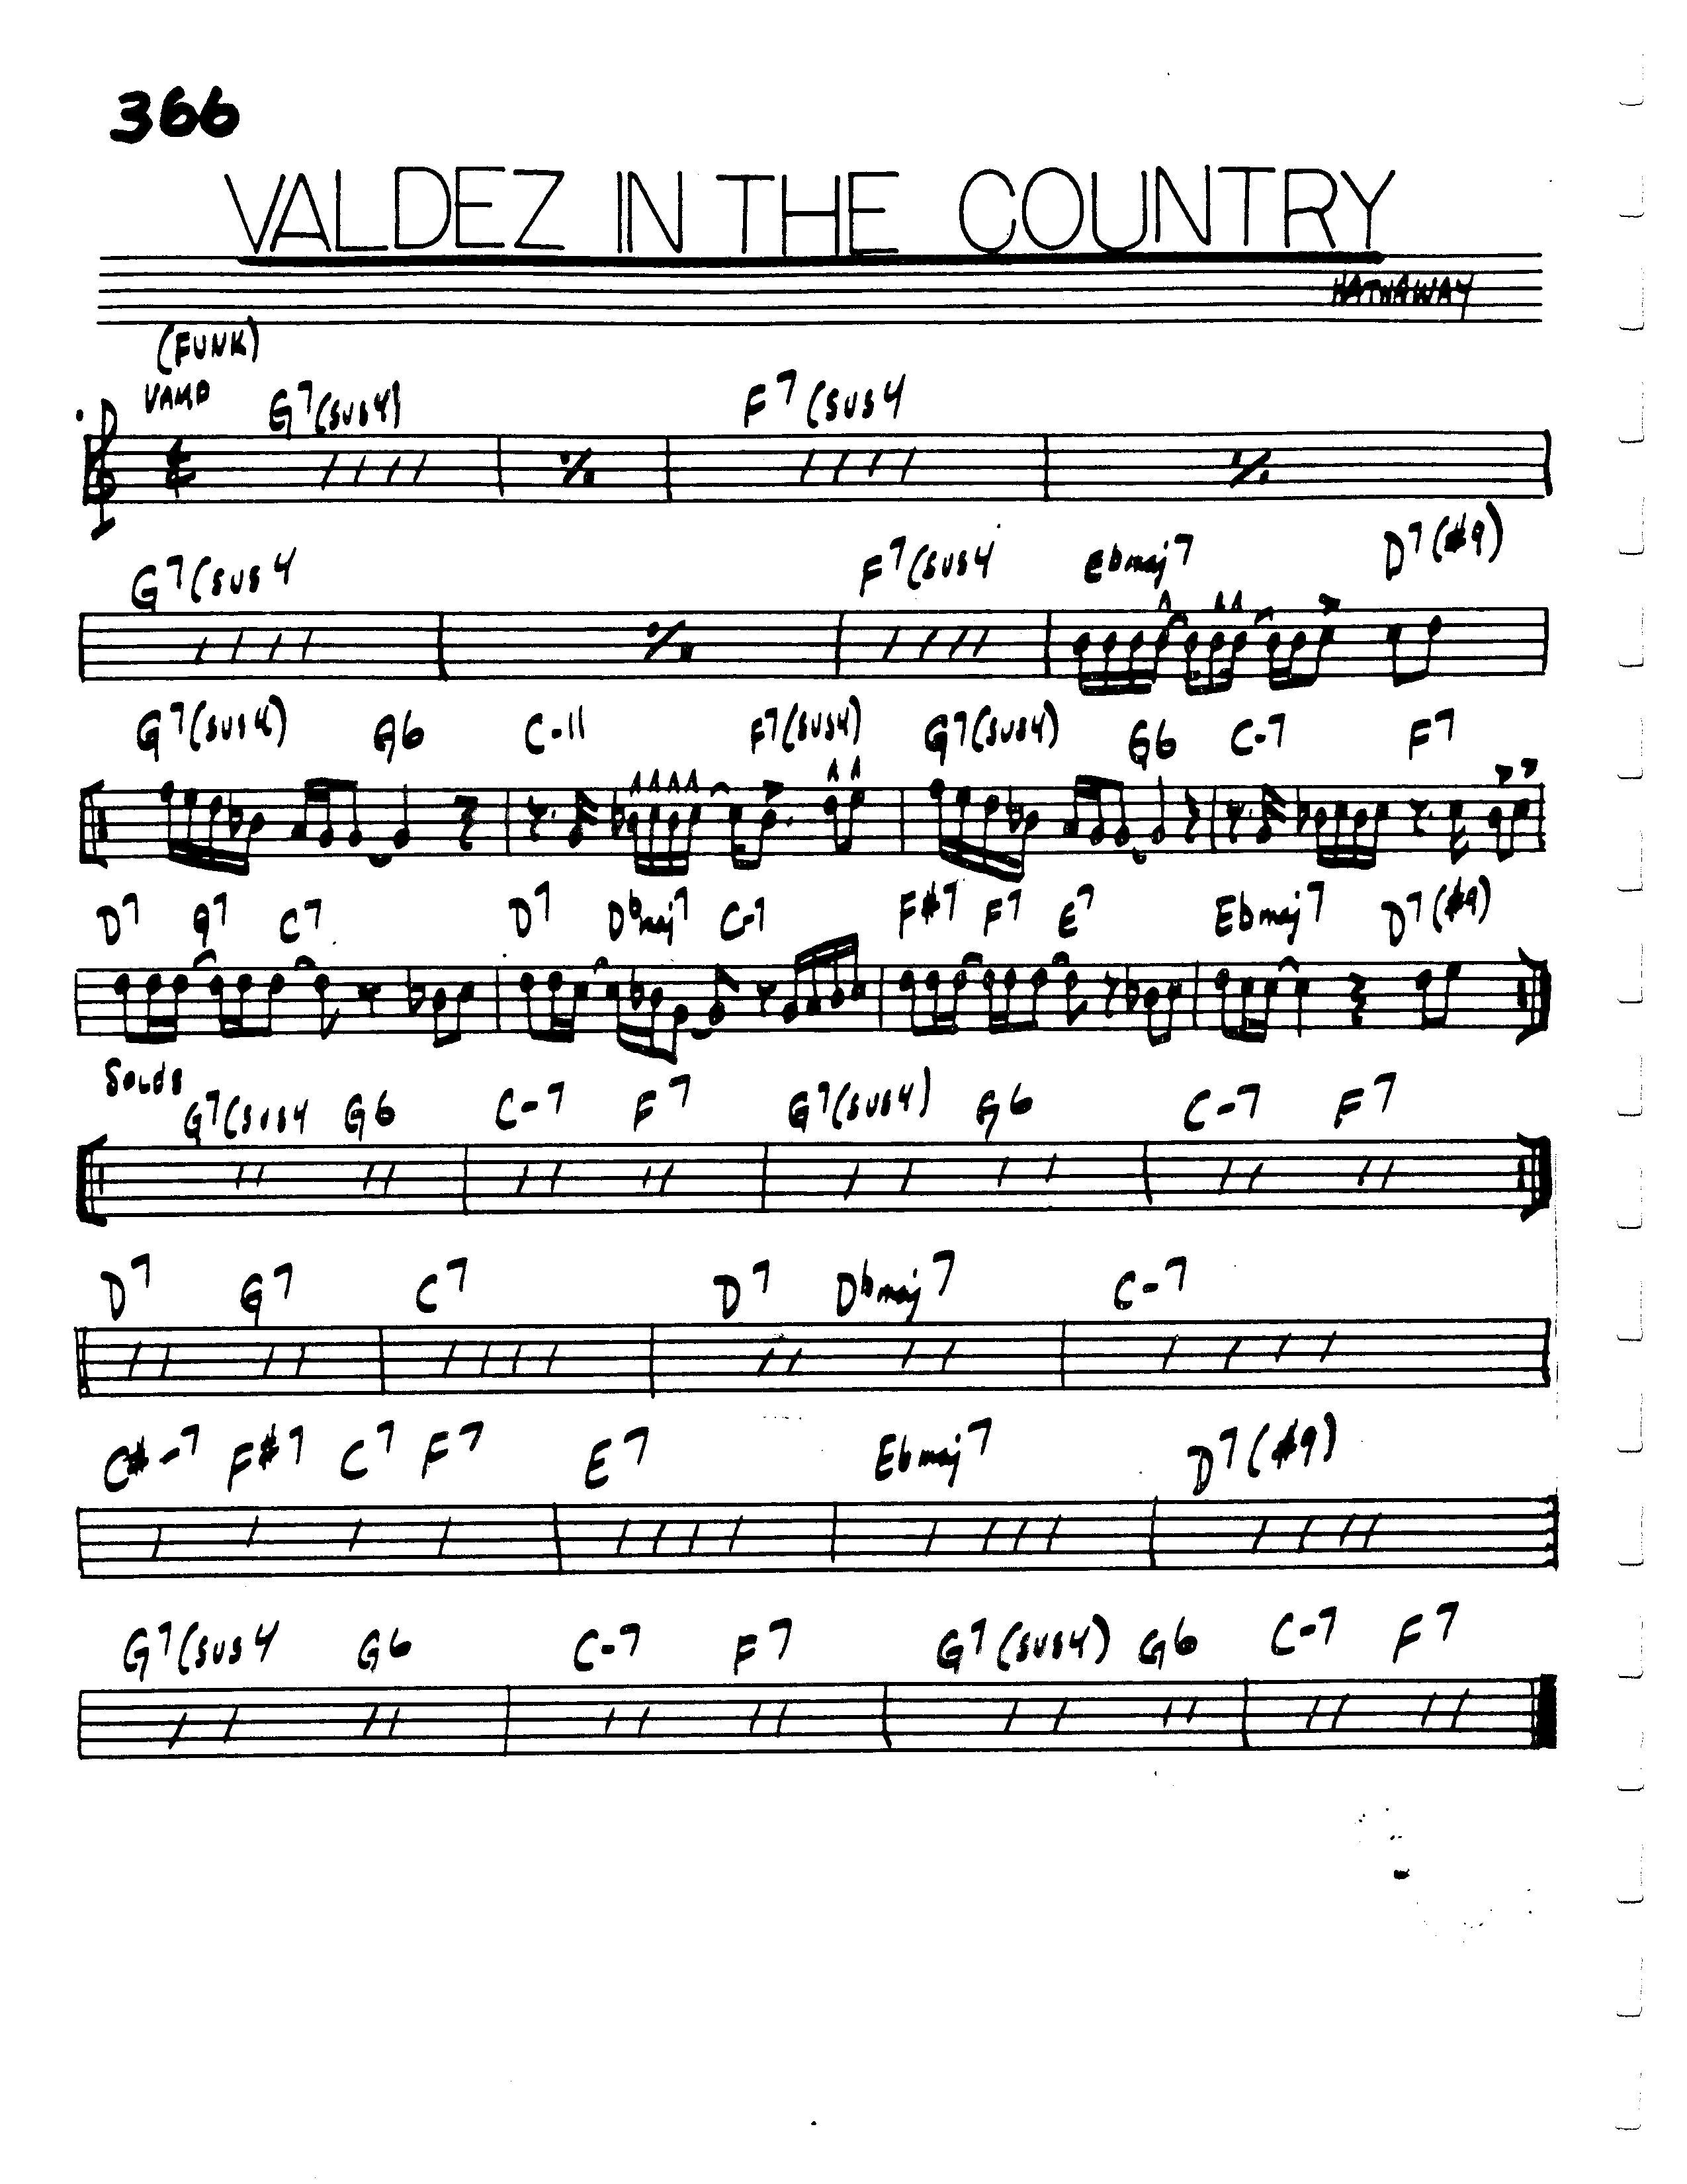 366
VALDEZ IN THE COUNTRY
HATHAWAY
(FUNK)
VAMP G7(sus4) F7(sus4
G7(sus4 F7(sus4 Ebmaj7 D7(#9)
G7(sus4) G6 C-11 F7(sus4) G7(sus4) G6 C-7 F7
D7 G7 C7 D7 Dbmaj7 C-7 F#7 F7 E7 Ebmaj7 D7(#9)
SOLOS
G7(sus4 G6 C-7 F7 G7(sus4) G6 C-7 F7
D7 G7 C7 D7 Dbmaj7 C-7
C#-7 F#7 C7 F7 E7 Ebmaj7 D7(#9)
G7(sus4 G6 C-7 F7 G7(sus4) G6 C-7 F7